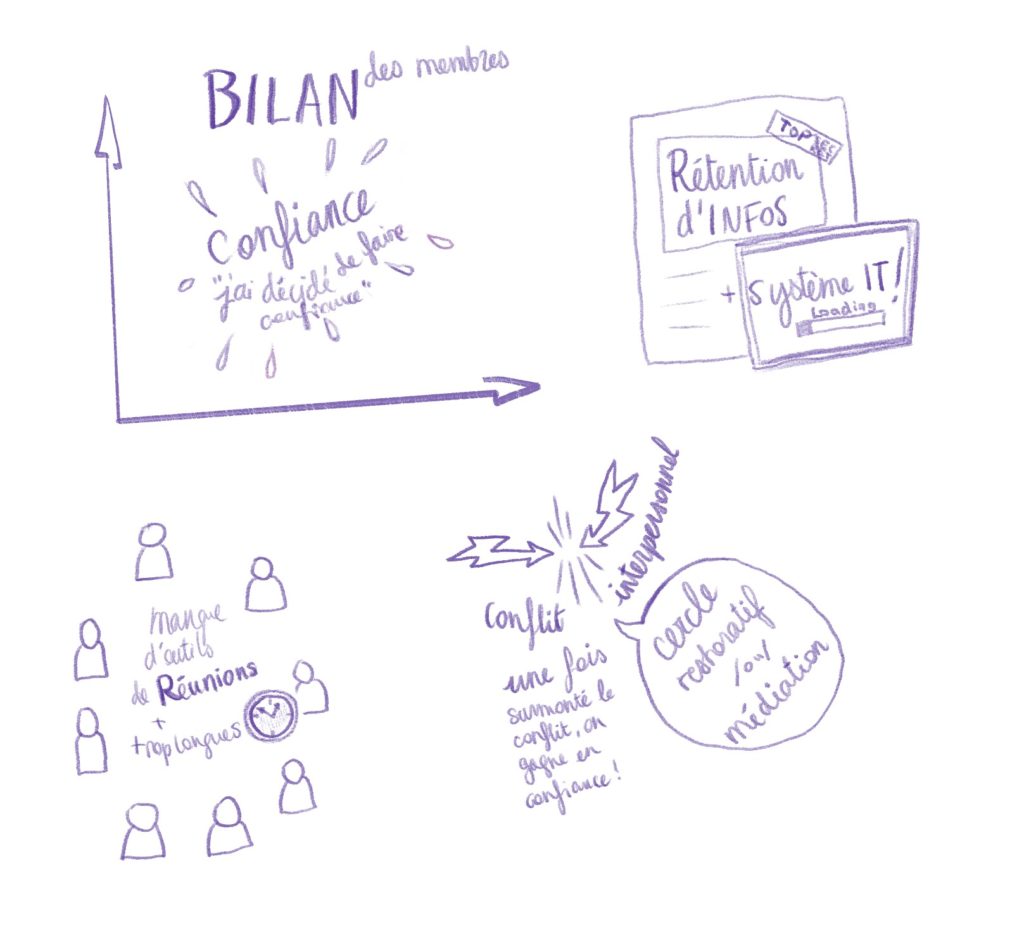 BILAN des membres
Confiance
"j'ai décidé de faire
confiance"
TOP SECRET
Rétention
d'INFOS
+ Système IT!
Loading
manque
d'outils
de Réunions
+
+ trop longues
Conflit interpersonnel
une fois
surmonté le
conflit, on
gagne en
confiance!
cercle
restoratif
/ou/
médiation